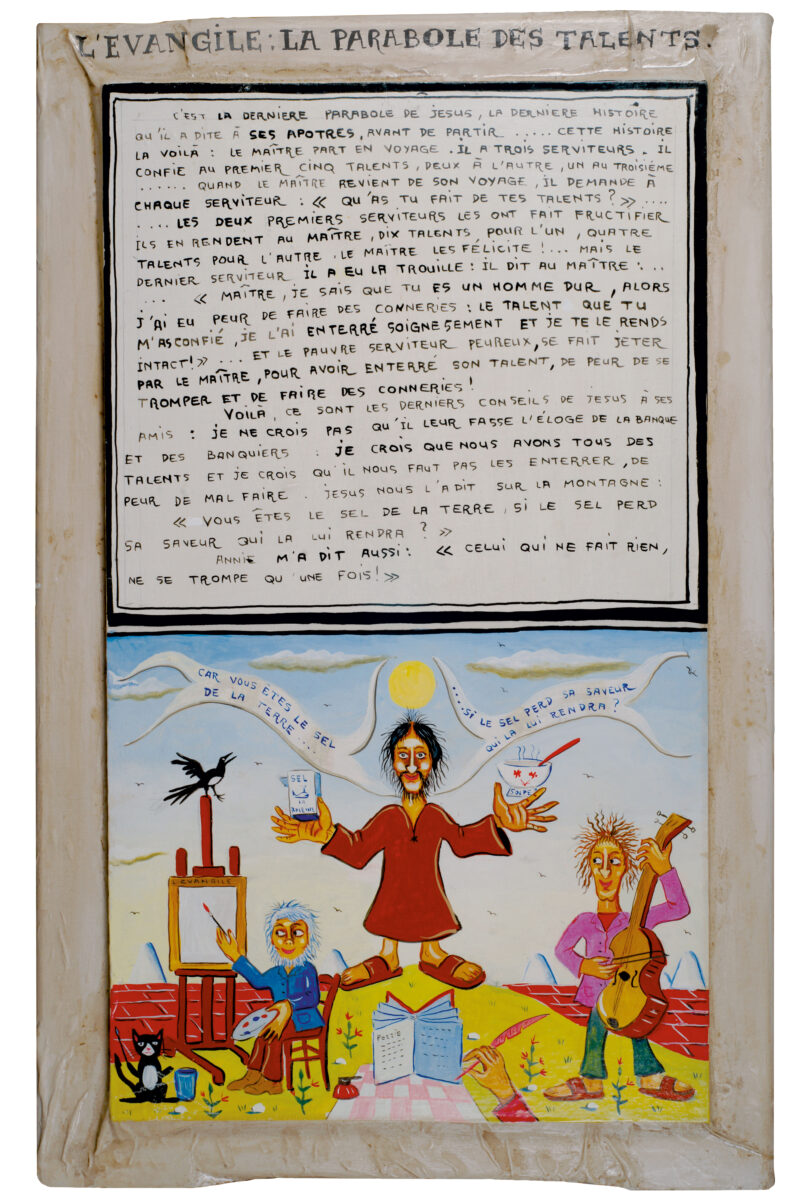 L'EVANGILE : LA PARABOLE DES TALENTS.
C'EST LA DERNIERE PARABOLE DE JESUS, LA DERNIERE HISTOIRE
QU'IL A DITE À SES APOTRES, AVANT DE PARTIR ..... CETTE HISTOIRE
LA VOILÀ : LE MAÎTRE PART EN VOYAGE . IL A TROIS SERVITEURS . IL
CONFIE AU PREMIER CINQ TALENTS, DEUX À L'AUTRE, UN AU TROISIÉME
...... QUAND LE MAÎTRE REVIENT DE SON VOYAGE, IL DEMANDE À
CHAQUE SERVITEUR : « QU'AS TU FAIT DE TES TALENTS ? » ....
.... LES DEUX PREMIERS SERVITEURS LES ONT FAIT FRUCTIFIER
ILS EN RENDENT AU MAÎTRE, DIX TALENTS POUR L'UN, QUATRE
TALENTS POUR L'AUTRE . LE MAÎTRE LES FÉLICITE !... MAIS LE
DERNIER SERVITEUR IL A EU LA TROUILLE : IL DIT AU MAÎTRE : ..
... « MAÎTRE, JE SAIS QUE TU ES UN HOMME DUR, ALORS
J'AI EU PEUR DE FAIRE DES CONNERIES : LE TALENT QUE TU
M'AS CONFIÉ, JE L'AI ENTERRÉ SOIGNESEMENT ET JE TE LE RENDS
INTACT ! » ... ET LE PAUVRE SERVITEUR PEUREUX, SE FAIT JETER
PAR LE MAÎTRE, POUR AVOIR ENTERRÉ SON TALENT, DE PEUR DE SE
TROMPER ET DE FAIRE DES CONNERIES !
VOILÀ, CE SONT LES DERNIERS CONSEILS DE JESUS À SES
AMIS : JE NE CROIS PAS QU'IL LEUR FASSE L'ÉLOGE DE LA BANQUE
ET DES BANQUIERS : JE CROIS QUE NOUS AVONS TOUS DES
TALENTS ET JE CROIS QU'IL NOUS FAUT PAS LES ENTERRER, DE
PEUR DE MAL FAIRE . JESUS NOUS L'A DIT SUR LA MONTAGNE :
« VOUS ÊTES LE SEL DE LA TERRE, SI LE SEL PERD
SA SAVEUR QUI LA LUI RENDRA ? »
ANNIE M'A DIT AUSSI : « CELUI QUI NE FAIT RIEN,
NE SE TROMPE QU'UNE FOIS ! »
CAR VOUS ETES LE SEL
DE LA TERRE ....
....SI LE SEL PERD SA SAVEUR
QUI LA LUI RENDRA ?
SEL
LA
BALEINE
SOUPE
L'EVANGILE
POESIE